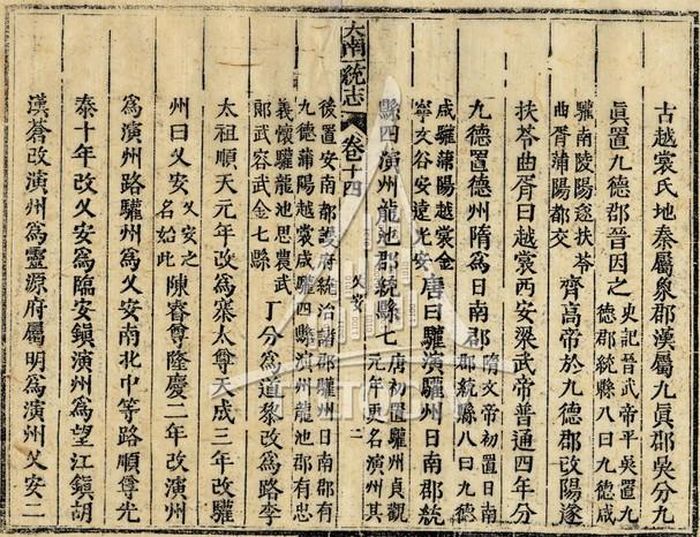 古越裳氏地秦屬象郡漢屬九眞郡吳分九
眞置九德郡晉因之
史記晉武帝平吳置九
德郡統縣八曰九德咸
驩南陵陽遂扶苓
曲胥蒲陽都交
齊高帝於九德郡改陽遂
扶苓曲胥曰越裳西安梁武帝普通四年分
九德置德州隋爲日南郡
隋文帝初置日南
郡統縣八曰九德
咸驩蒲陽越裳金
寧交谷安遠光安
唐曰驩演驩州日南郡統
縣四演州龍池郡統縣七
唐初置驩州貞觀
元年更名演州其
大南一統志 卷十四 乂安 二
後置安南都護府統治諸郡驩州日南郡有
九德蒲陽越裳咸驩四縣演州龍池郡有忠
義懷驩龍池思農武
郎武容武金七縣
丁分爲道黎改爲路李
太祖順天元年改爲寨太尊天成三年改驩
州曰乂安
乂安之
名始此
陳睿尊隆慶二年改演州
爲演州路驩州爲乂安南北中等路順尊光
泰十年改乂安爲臨安鎮演州爲望江鎮胡
漢蒼改演州爲靈源府屬明爲演州乂安二